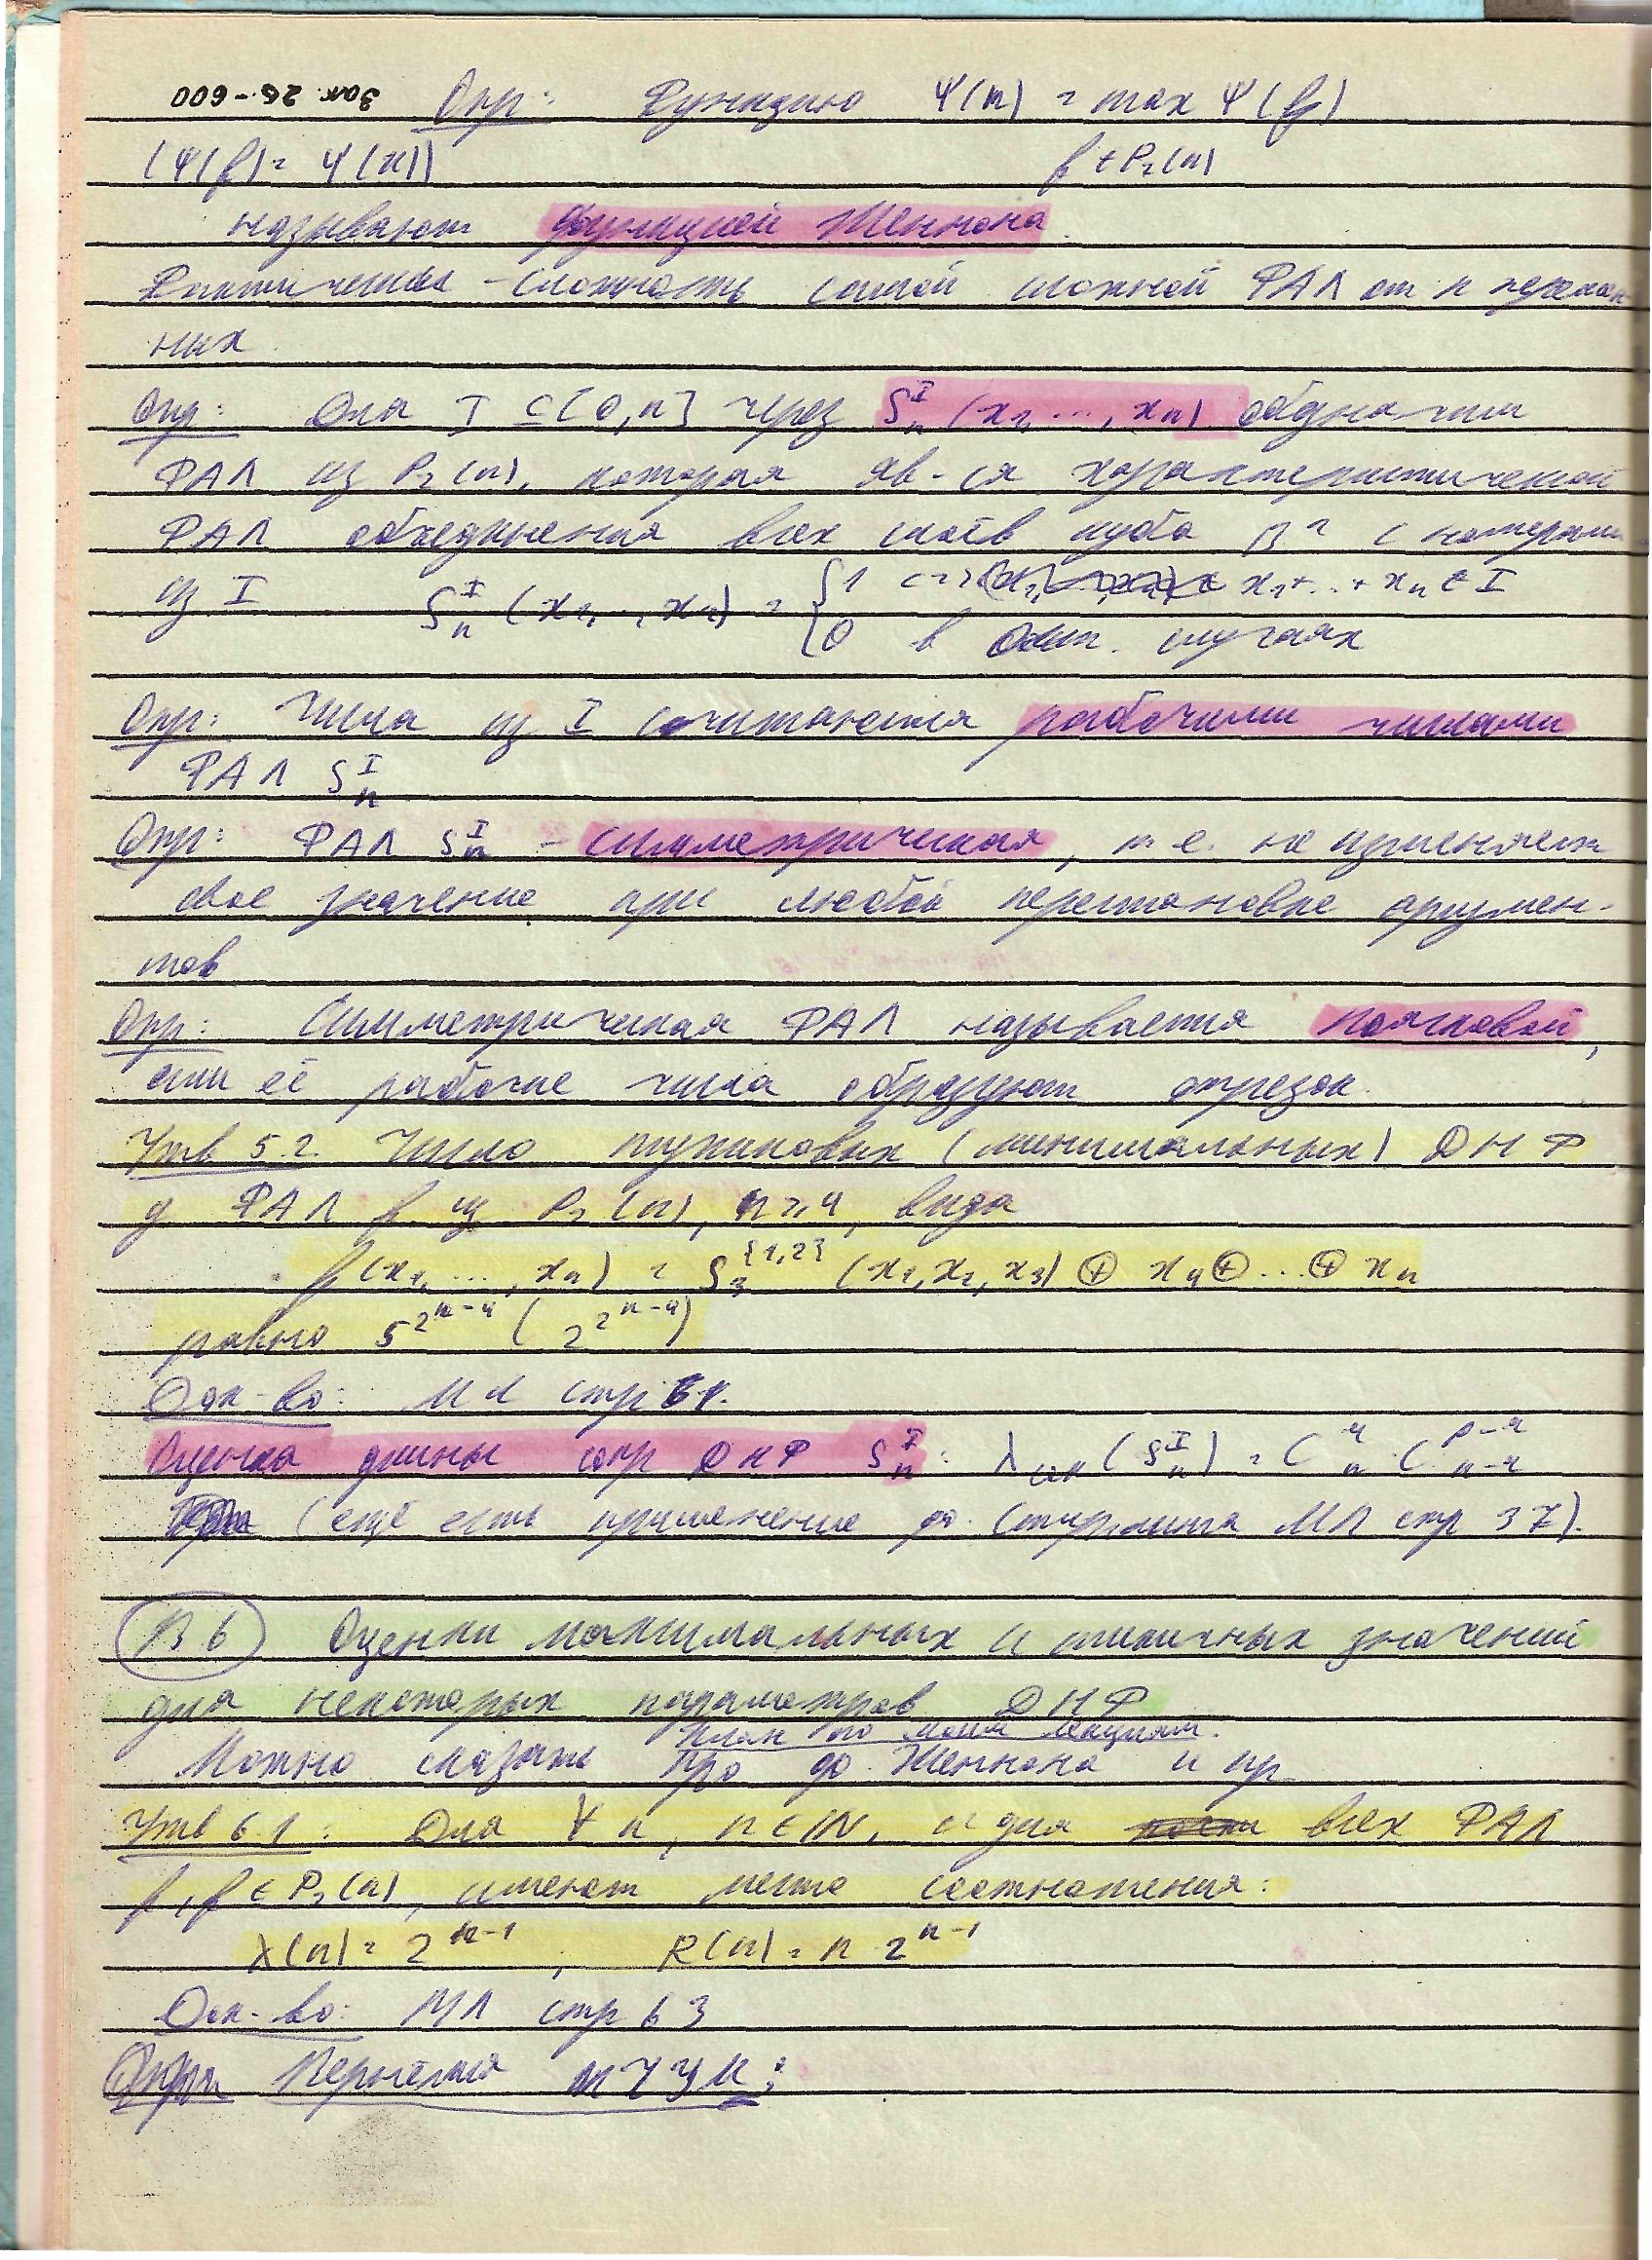 Зак. 26-600
Опр: Функцию Ψ(n) = max Ψ(f)
(Ψ(f) = Ψ(n)) f ∈ P₂(n)
называют функцией Шеннона.
Фактически - сложность самой сложной ФАЛ от n перемен
ных
Опр: Для I ⊆ [0,n] через S_n^I (x₁, ..., x_n) обозначим
ФАЛ из P₂(n), которая яв-ся характеристической
ФАЛ объединения всех слоёв куба Bⁿ с номерами
из I S_n^I (x₁, .., x_n) = { 1 <=> x₁+..+x_n ∈ I
0 в ост. случаях
Опр: Числа из I считаются рабочими числами
ФАЛ S_n^I
Опр: ФАЛ S_n^I - симметрическая, т.е. не изменяет
свое значение при любой перестановке аргумен-
тов
Опр: Симметрическая ФАЛ называется поясковой,
если её рабочие числа образуют отрезок.
Утв 5.2. Число тупиковых (минимальных) ДНФ
у ФАЛ f из P₂(n), n ≥ 4, вида
f(x₁, ..., x_n) = S_3^{1,2} (x₁, x₂, x₃) ⊕ x₄ ⊕ ... ⊕ x_n
равно 5^{2^{n-4}} (2^{2^{n-4}})
Док-во: МЛ стр 61.
Оценка длины сокр ДНФ S_n^I: λ_сок (S_n^I) = C_n^r · C_{n-r}^{p-r}
(ещё есть применение ф. Стирлинга МЛ стр 37).
В 6 Оценки максимальных и типичных значений
для некоторых параметров ДНФ
План по моим лекциям.
Можно сказать про ф. Шеннона и пр
Утв 6.1: Для ∀ n, n ∈ ℕ, и для всех ФАЛ
f, f ∈ P₂(n), имеют место соотношения:
λ(n) = 2^{n-1}, R(n) = n · 2^{n-1}
Док-во: МЛ стр 63
Вернёмся к